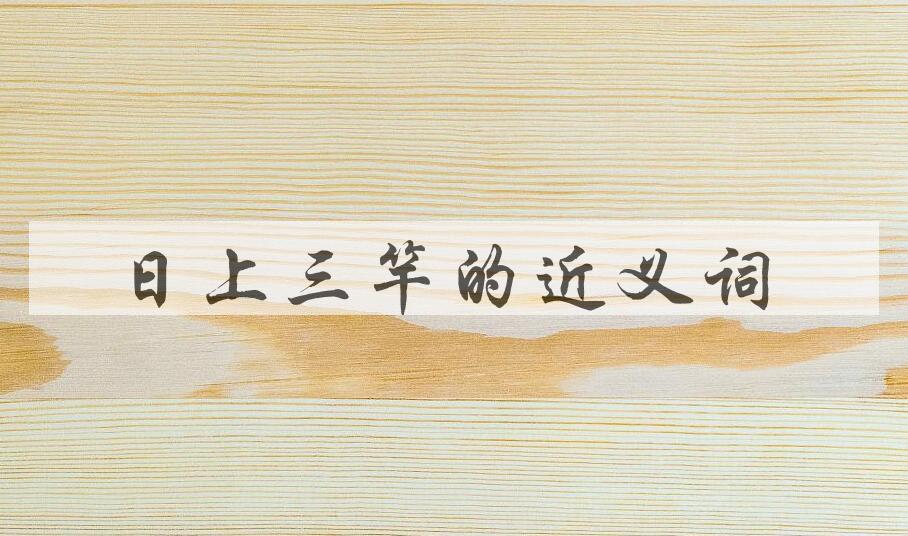 日上三竿的近义词